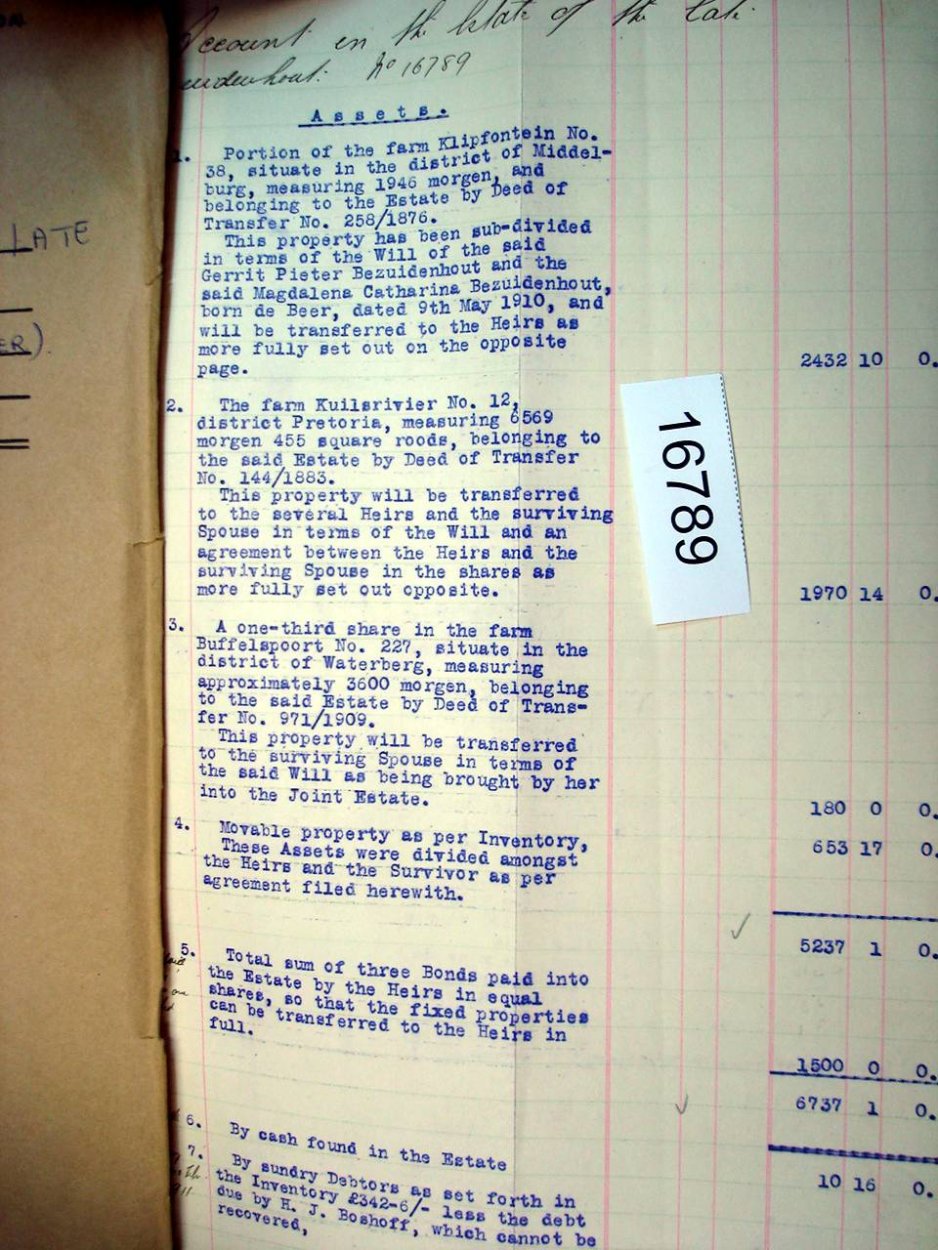 LATE
ER)
Account in the Estate of the late
No 16789
Assets.
1. Portion of the farm Klipfontein No.
38, situate in the district of Middel-
burg, measuring 1946 morgen, and
belonging to the Estate by Deed of
Transfer No. 258/1876.
This property has been sub-divided
in terms of the Will of the said
Gerrit Pieter Bezuidenhout and the
said Magdalena Catharina Bezuidenhout,
born de Beer, dated 9th May 1910, and
will be transferred to the Heirs as
more fully set out on the opposite
page. 2432 10 0.
2. The farm Kuilsrivier No. 12,
district Pretoria, measuring 6569
morgen 455 square roods, belonging to
the said Estate by Deed of Transfer
No. 144/1883.
This property will be transferred
to the several Heirs and the surviving
Spouse in terms of the Will and an
agreement between the Heirs and the
surviving Spouse in the shares as
more fully set out opposite. 1970 14 0.
16789
3. A one-third share in the farm
Buffelspoort No. 227, situate in the
district of Waterberg, measuring
approximately 3600 morgen, belonging
to the said Estate by Deed of Trans-
fer No. 971/1909.
This property will be transferred
to the surviving Spouse in terms of
the said Will as being brought by her
into the Joint Estate. 180 0 0.
4. Movable property as per Inventory, 653 17 0.
These Assets were divided amongst
the Heirs and the Survivor as per
agreement filed herewith.
5237 1 0.
5. Total sum of three Bonds paid into
the Estate by the Heirs in equal
shares, so that the fixed properties
can be transferred to the Heirs in
full. 1500 0 0.
6737 1 0.
6. By cash found in the Estate 10 16 0.
7. By sundry Debtors as set forth in
the Inventory £342-6/- less the debt
due by H. J. Boshoff, which cannot be
recovered,